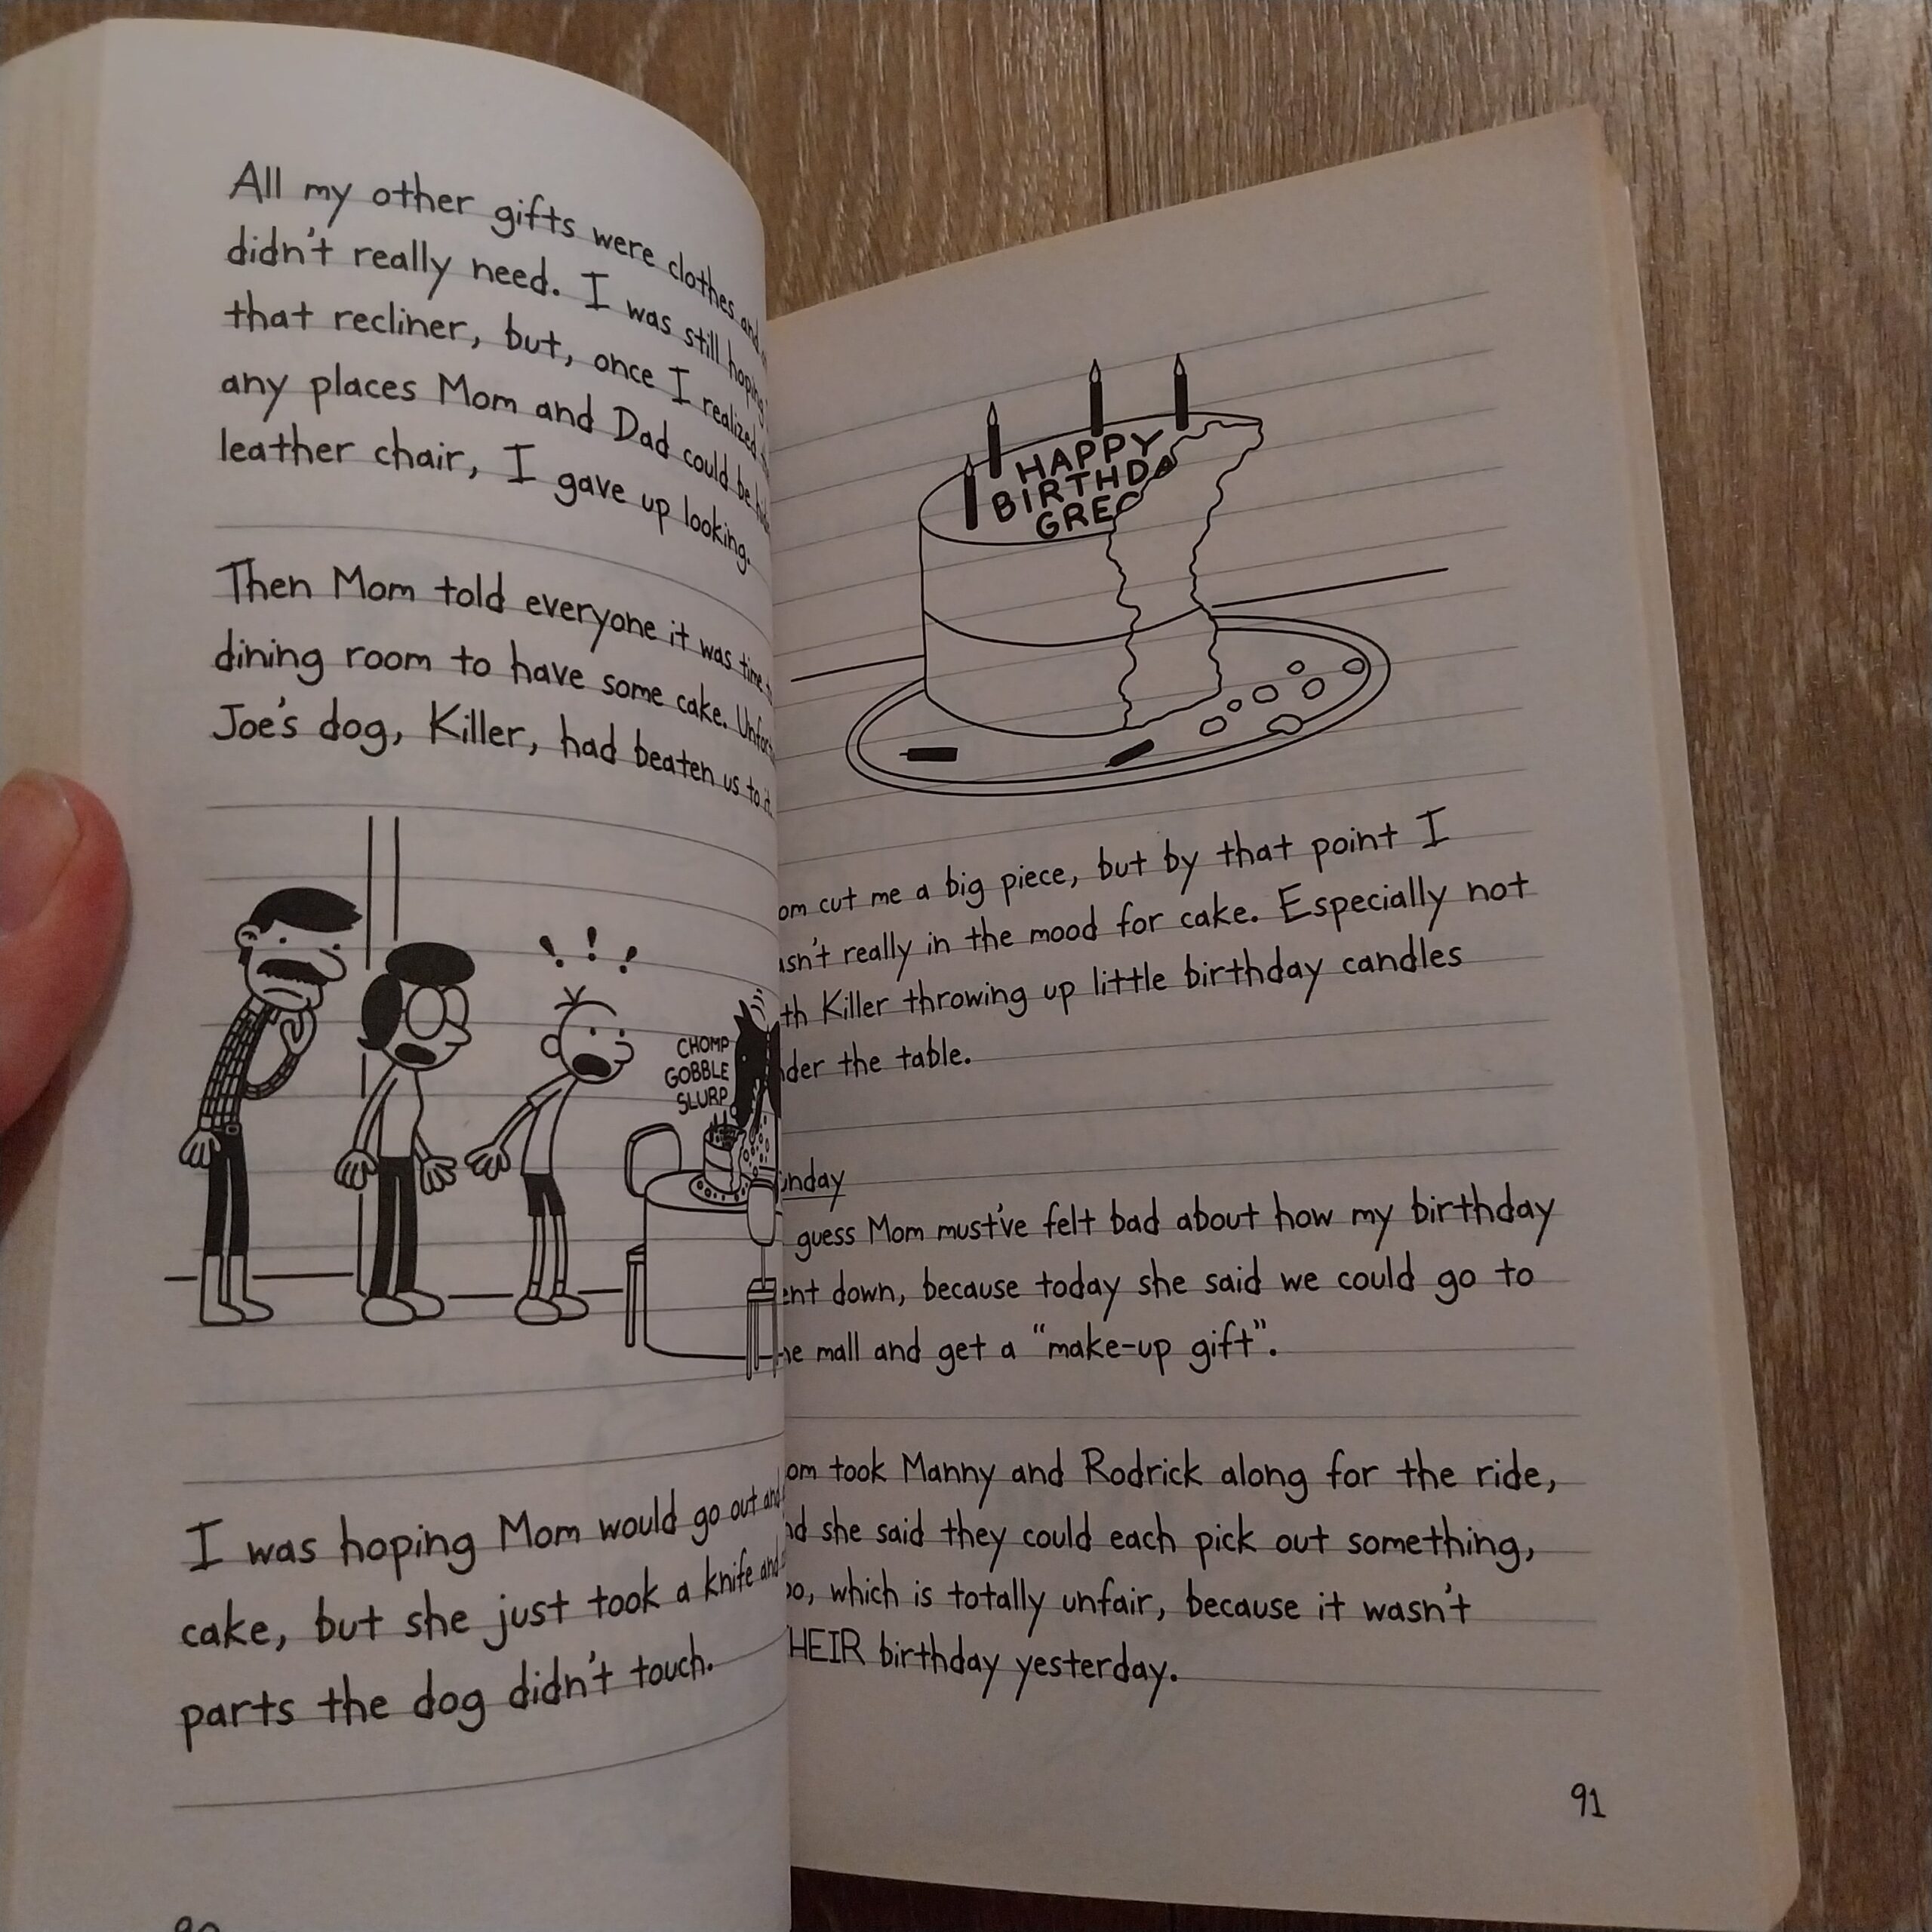 All my other gifts were clothes and
didn't really need. I was still hoping
that recliner, but, once I realized
any places Mom and Dad could be
leather chair, I gave up looking.
Then Mom told everyone it was time
dining room to have some cake.
Joe's dog, Killer, had beaten us to it.
! ! !
CHOMP
GOBBLE
SLURP
I was hoping Mom would go out and
cake, but she just took a knife and
parts the dog didn't touch.
HAPPY
BIRTHDA
GREG
om cut me a big piece, but by that point I
asn't really in the mood for cake. Especially not
th Killer throwing up little birthday candles
der the table.
unday
guess Mom must've felt bad about how my birthday
ent down, because today she said we could go to
he mall and get a "make-up gift".
om took Manny and Rodrick along for the ride,
nd she said they could each pick out something,
oo, which is totally unfair, because it wasn't
HEIR birthday yesterday.
91